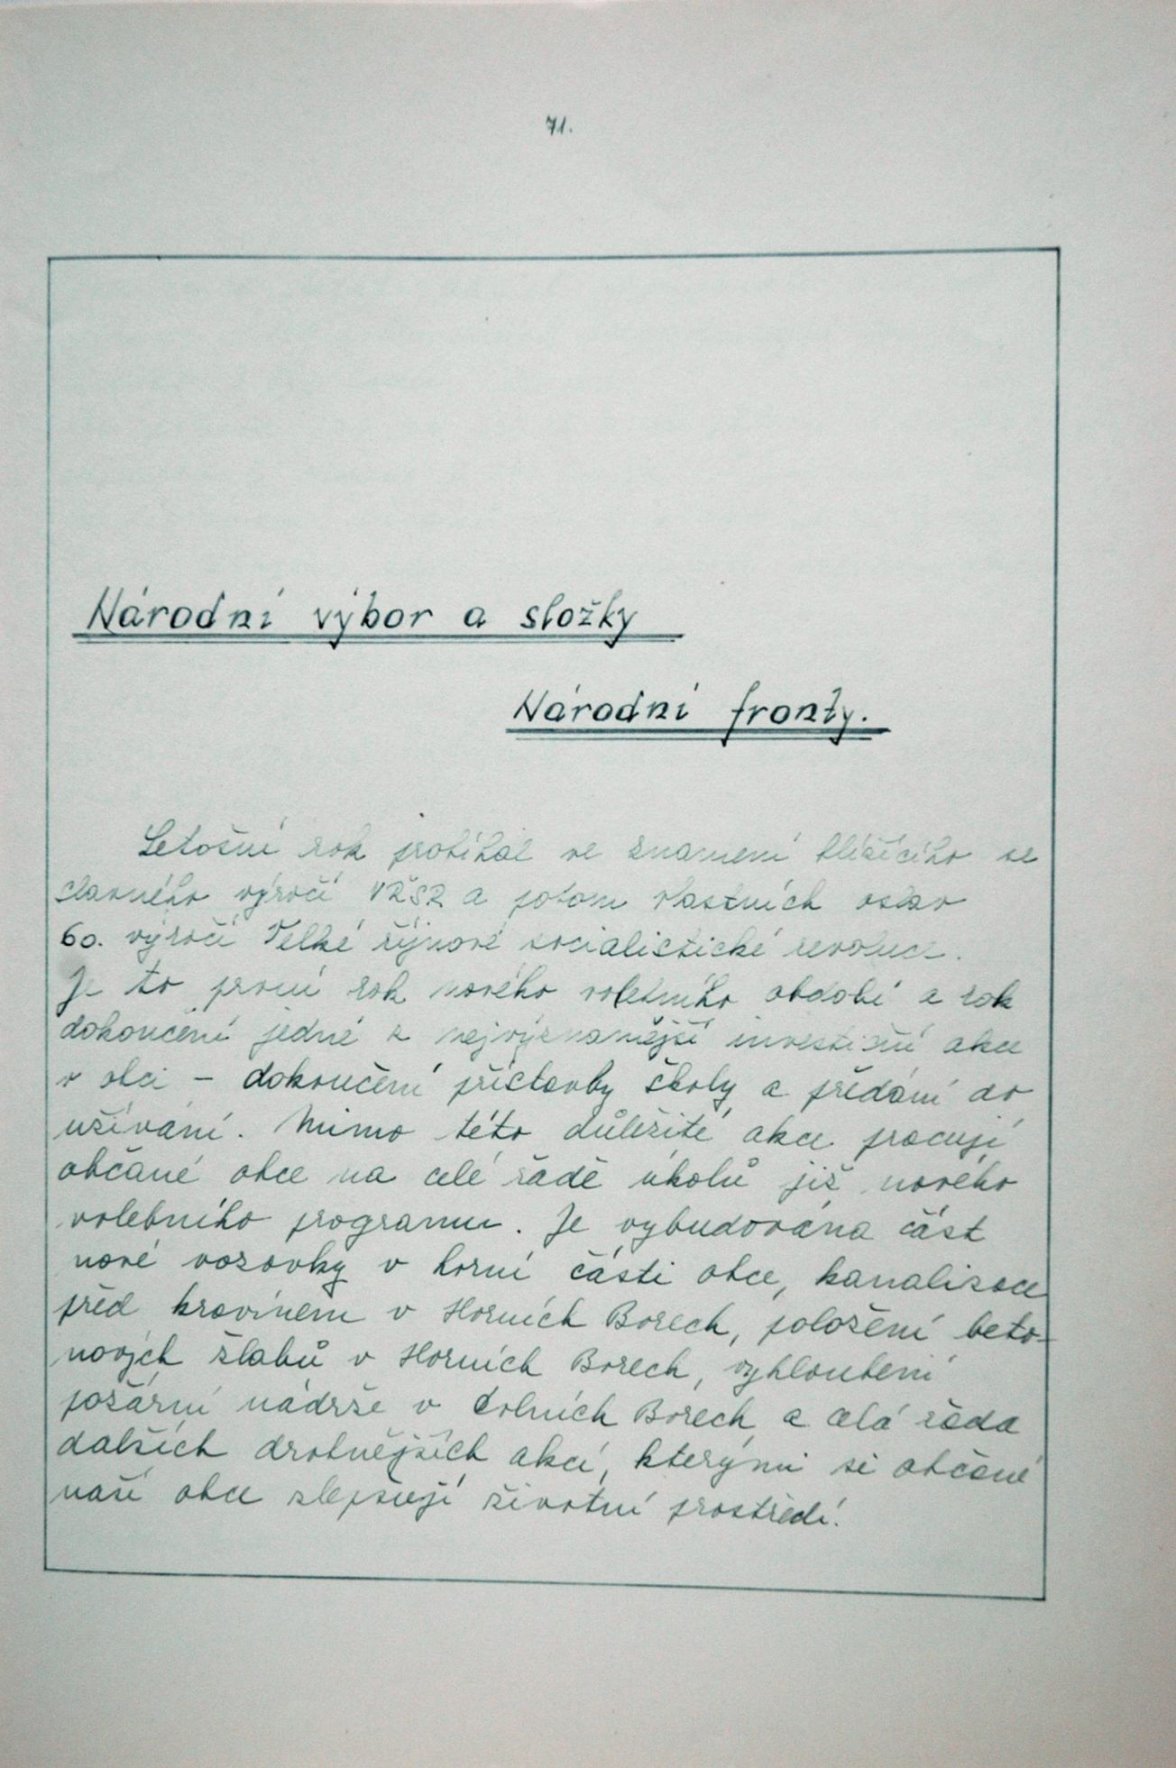 71.
Národní výbor a složky
Národní fronty.
Letošní rok probíhal ve znamení blížícího se
slavného výročí VŘSR a potom vlastních oslav
60. výročí Velké říjnové socialistické revoluce.
Je to první rok nového volebního období a rok
dokončení jedné z nejvýznamější investiční akce
v obci - dokončení přístavby školy a předání do
užívání. Mimo této důležité akce pracují
občané obce na celé řadě úkolů již nového
volebního programu. Je vybudována část
nové vozovky v horní části obce, kanalizace
před kravínem v Horních Borech, položení beto-
nových žlabů v Horních Borech, vyhloubení
požární nádrže v Dolních Borech a celá řada
dalších drobnějších akcí, kterými si občané
naší obce zlepšují životní prostředí.